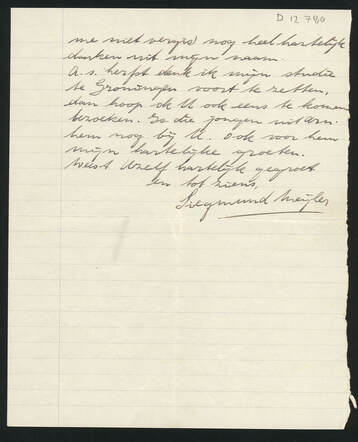 D 12780
me niet vergis) nog heel hartelijk
danken uit mijn naam.
A.s. herfst denk ik mijn studie
te Groningen voort te zetten,
dan hoop ik U ook eens te komen
bezoeken. Is die jongen uit Arn-
hem nog bij U. ook voor hem
mijn hartelijke groeten.
Weest Uzelf hartelijk gegroet
en tot ziens,
Siegmund Meijler